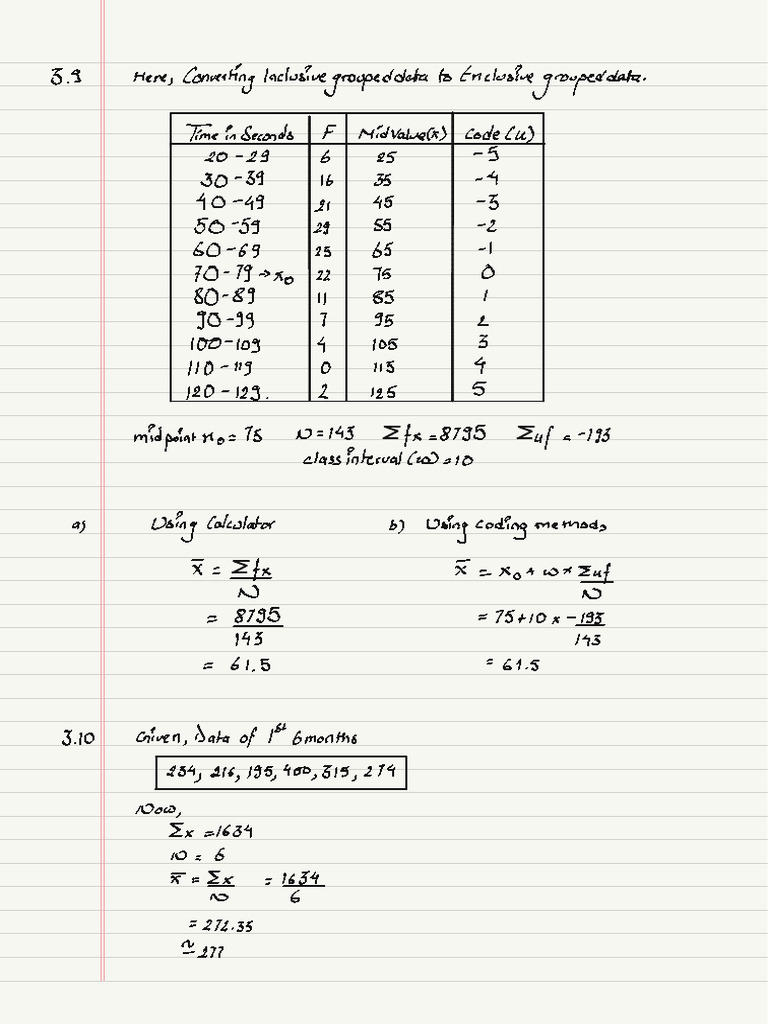 3.9 Here, Converting Inclusive grouped data to Enclusive grouped data.
Time in Seconds F MidValue(x) Code (u)
20 - 29 6 25 -5
30 - 39 16 35 -4
40 - 49 21 45 -3
50 - 59 29 55 -2
60 - 69 25 65 -1
70 - 79 → x₀ 22 75 0
80 - 89 11 85 1
90 - 99 7 95 2
100 - 109 4 105 3
110 - 119 0 115 4
120 - 129. 2 125 5
midpoint x₀ = 75 N = 143 Σfx = 8795 Σuf = -193
class interval (w) = 10
a) Using Calculator b) Using Coding methods
x̄ = Σfx x̄ = x₀ + w × Σuf
N N
= 8795 = 75 + 10 × -193
143 143
= 61.5 = 61.5
3.10 Given, Data of 1st 6 months
234, 216, 195, 400, 315, 274
Now,
Σx = 1634
n = 6
x̄ = Σx = 1634
N 6
= 272.35
≃ 277